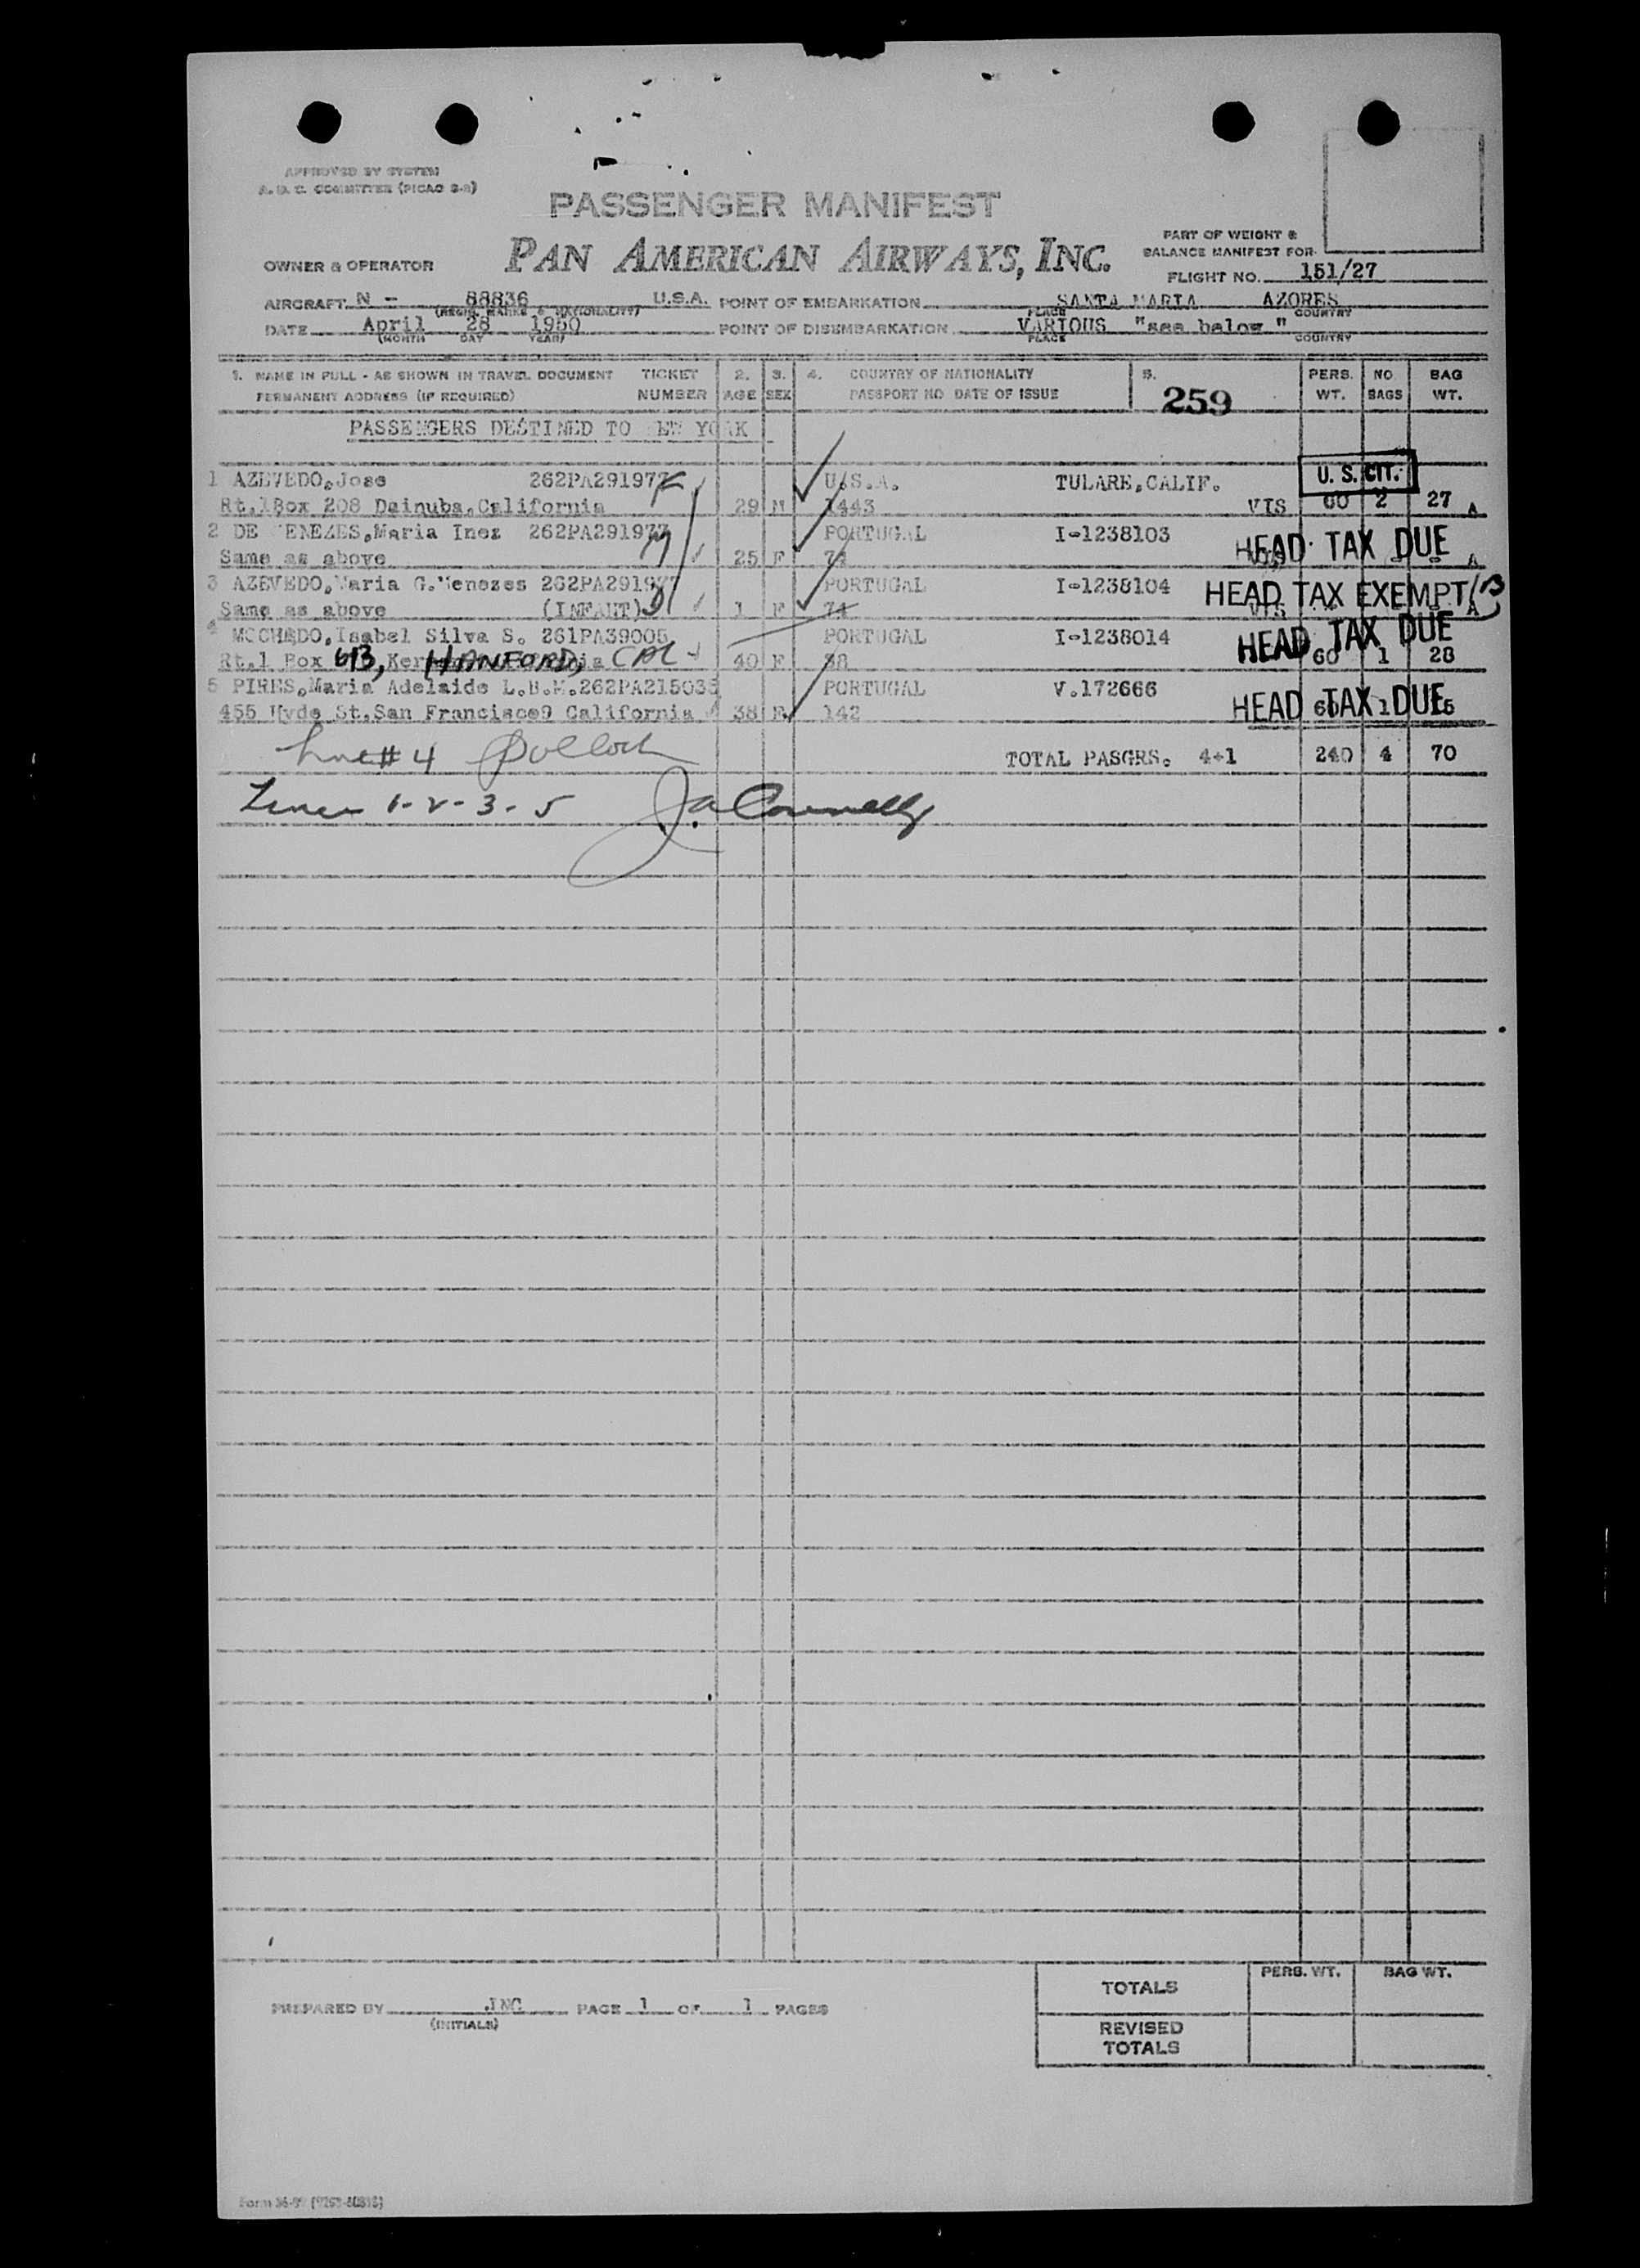 APPROVED BY SYSTEM
A. D. C. COMMITTEE (PICAO 2-1)
PASSENGER MANIFEST
PAN AMERICAN AIRWAYS, INC.
OWNER & OPERATOR
PART OF WEIGHT &
BALANCE MANIFEST FOR
FLIGHT NO. 151/27
AIRCRAFT N - 88836 U.S.A. POINT OF EMBARKATION SANTA MARIA AZORES
(REGIS. MARKS & NATIONALITY) PLACE COUNTRY
DATE April 28 1950 POINT OF DISEMBARKATION VARIOUS "see below"
(MONTH DAY YEAR) PLACE COUNTRY
1. NAME IN FULL - AS SHOWN IN TRAVEL DOCUMENT TICKET 2. 3. 4. COUNTRY OF NATIONALITY 5. PERS. NO. BAG
PERMANENT ADDRESS (IF REQUIRED) NUMBER AGE SEX PASSPORT NO DATE OF ISSUE 259 WT. BAGS WT.
PASSENGERS DESTINED TO NEW YORK
1 AZEVEDO,Jose 262PA291977 U.S.A. TULARE,CALIF. U. S. CIT.
Rt.1Box 208 Dainuba,California 29 M 1443 VIS 60 2 27 A
2 DE MENEZES,Maria Inez 262PA291977 PORTUGAL I-1238103
Same as above 25 F 74 HEAD TAX DUE A
3 AZEVEDO,Maria G.Menezes 262PA291977 PORTUGAL I-1238104 HEAD TAX EXEMPT/13
Same as above (INFANT) 1 F 74 VIS A
4 MOCHADO,Isabel Silva S. 261PA39005 PORTUGAL I-1238014 HEAD TAX DUE
Rt.1 Box 613, HANFORD, CAL 40 F 38 60 1 28
5 PIRES,Maria Adelaide L.B.M.262PA215035 PORTUGAL V.172666
455 Hyde St.San Francisco9 California 38 F 142 HEAD TAX DUE 60 1
Line # 4 Pollock TOTAL PASGRS. 4+1 240 4 70
Lines 1-2-3-5 J.A. Connelly
PERS. WT. BAG WT.
TOTALS
PREPARED BY JMC PAGE 1 OF 1 PAGES
(INITIALS)
REVISED
TOTALS